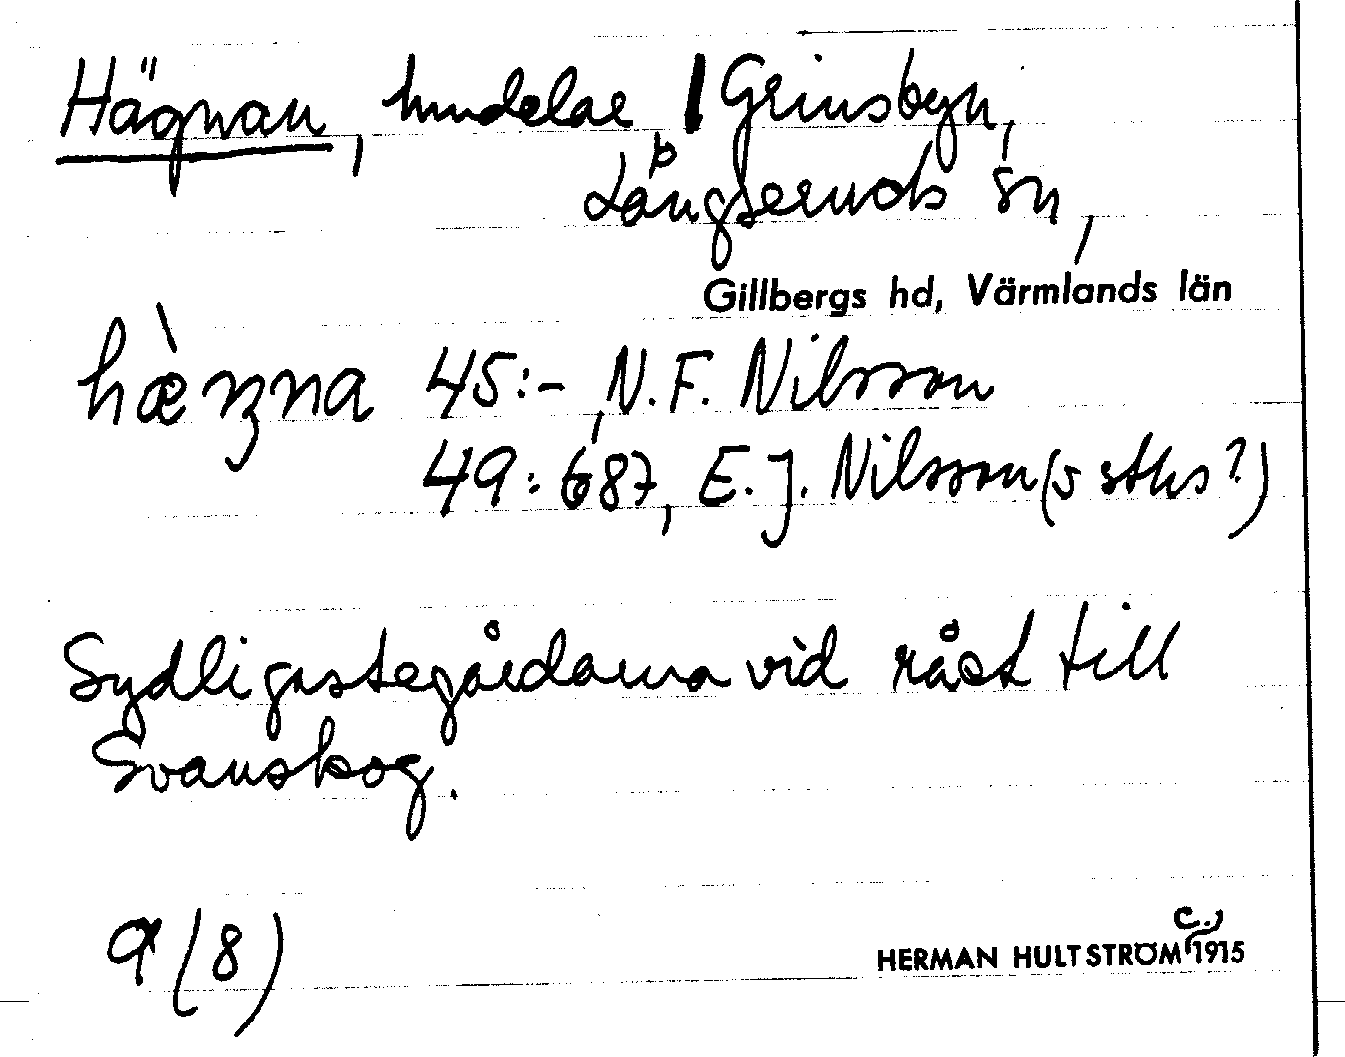 Hägnan, hmdelar, / Grinsbyn,
Långseruds sn,
Gillbergs hd, Värmlands län
hæ̀nzna 45:-, N. F. Nilsson
49:687, E. J. Nilsson (5 stks?)
Sydligastegårdarna vid rået till
Svanskog.
9 (8)
HERMAN HULTSTRÖM c., 1915